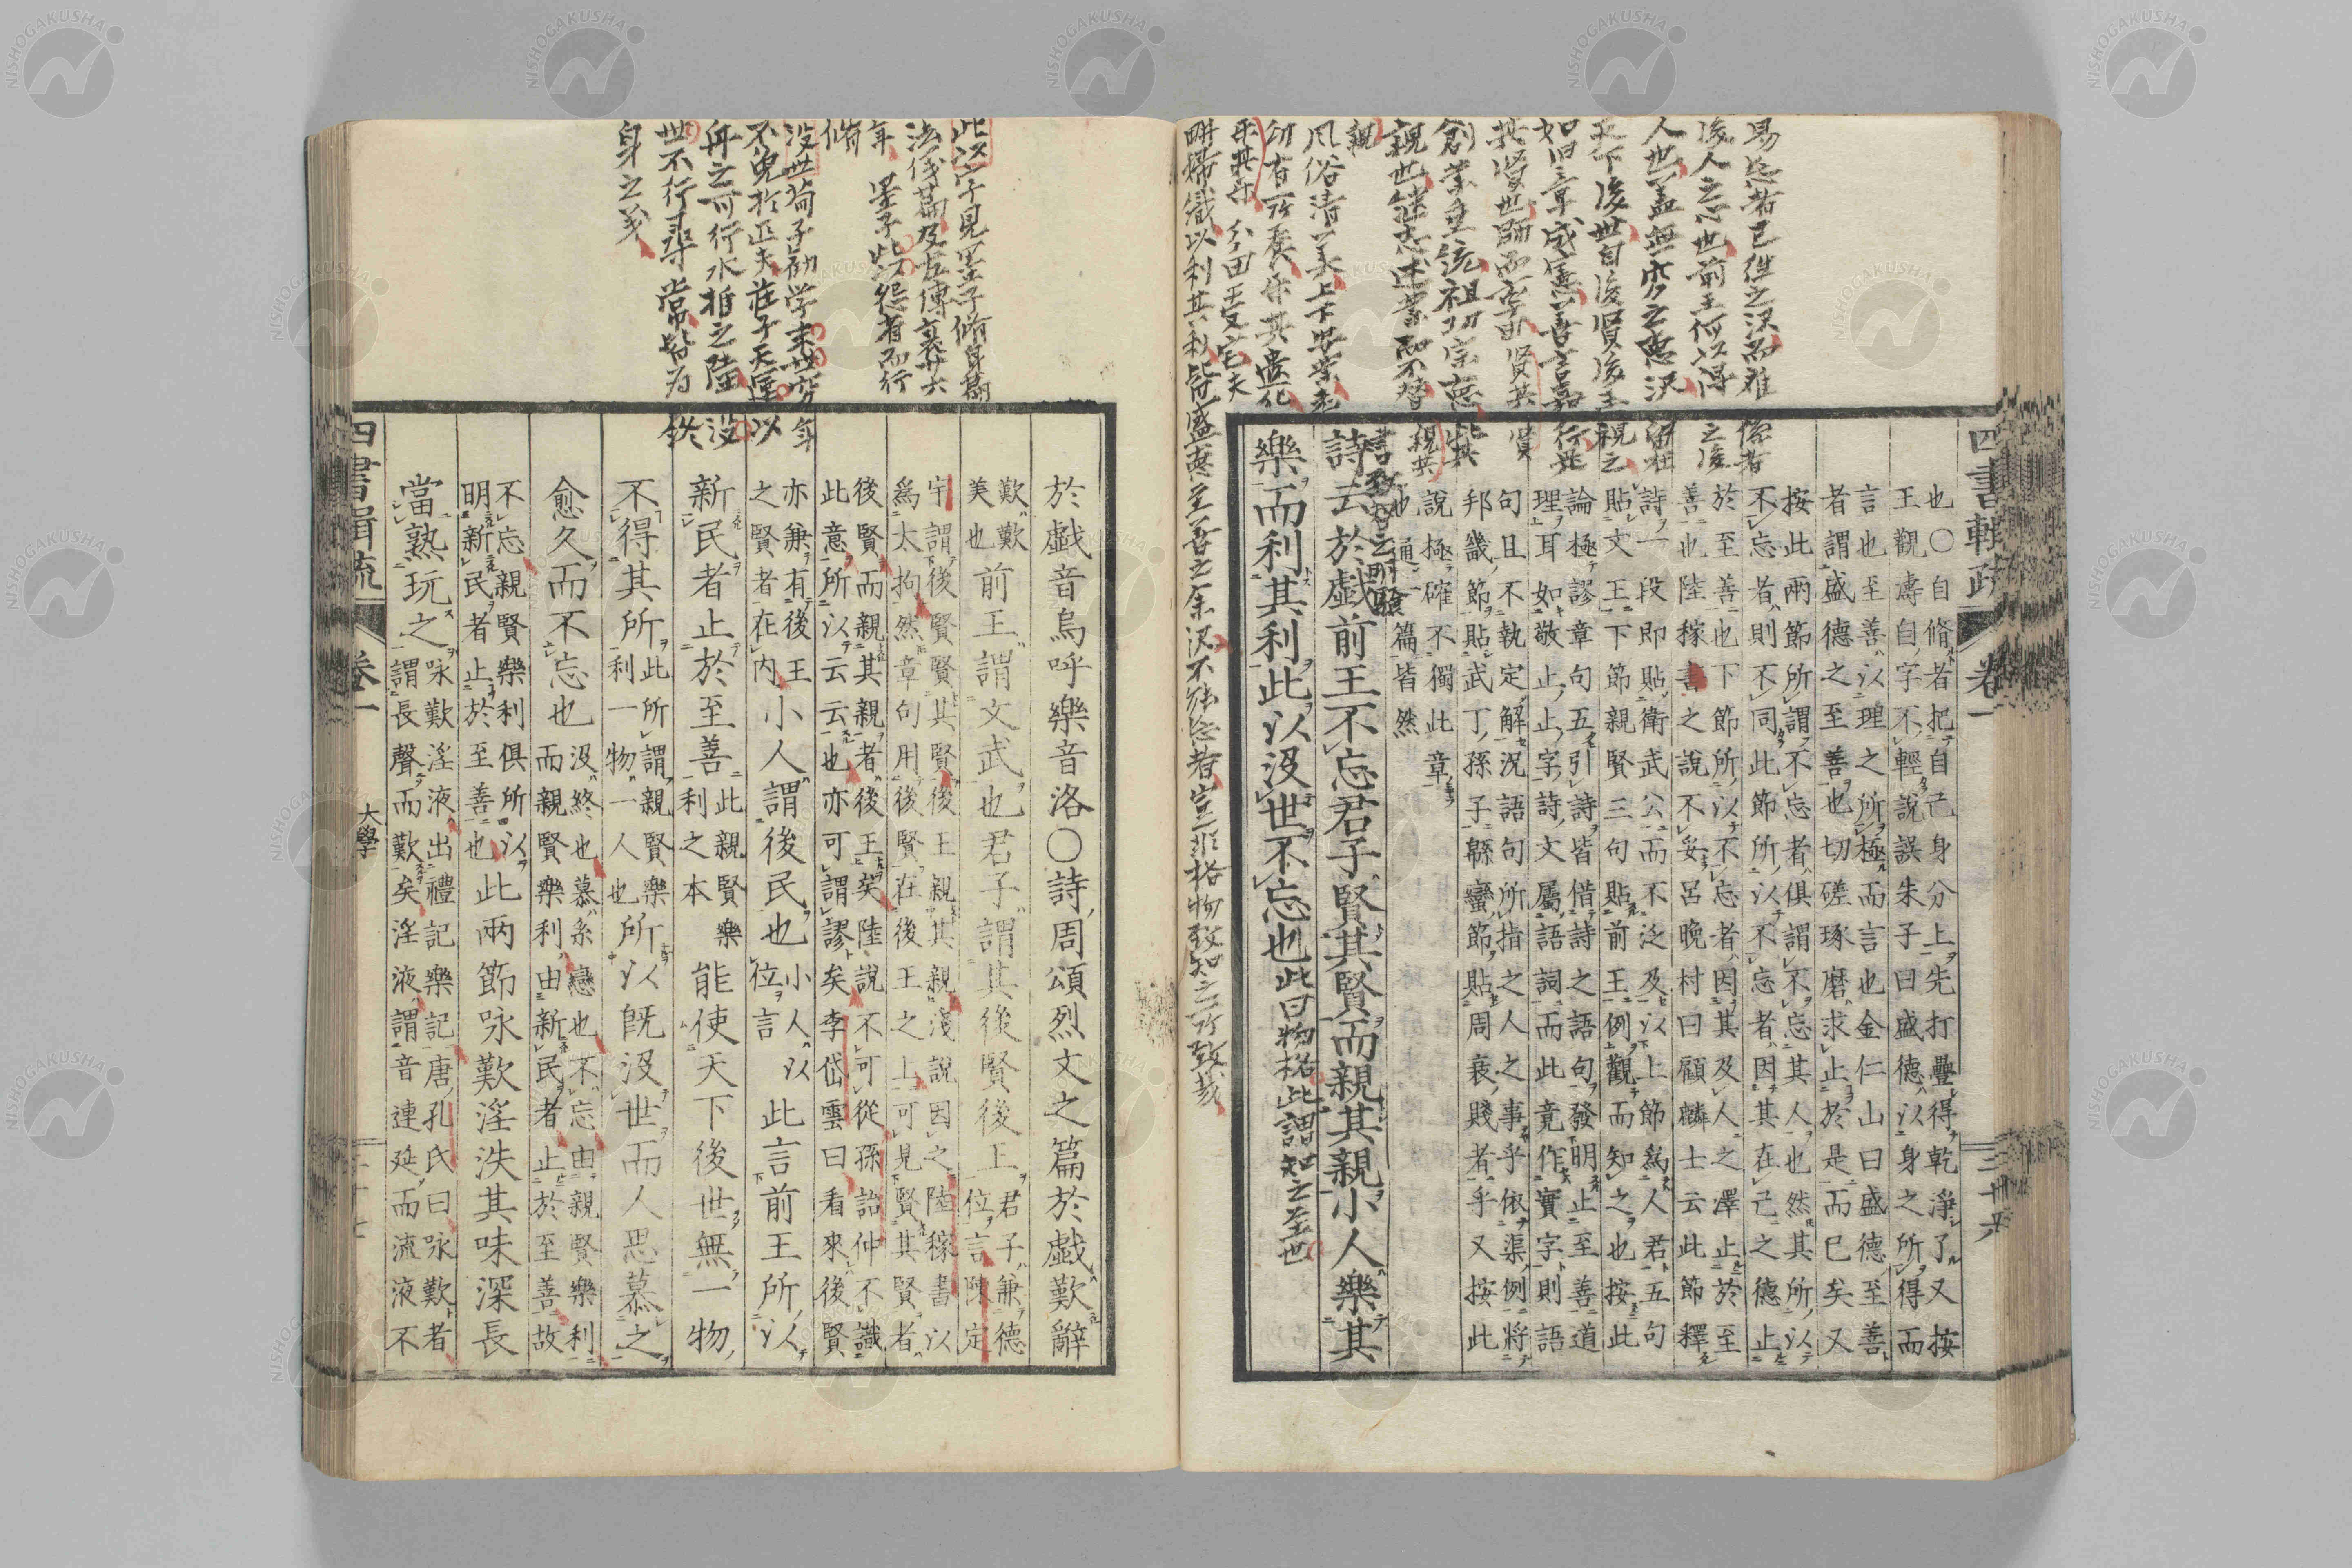 四書輯疏 卷一
易忘者已徃之沢而雖
後人之志也前王何以得
人世蓋無窮之惠沢
天下後世自後賢後王
如旧章成憲善言嘉
創業垂統祖功宗德
親世継志述業而不替
親
風俗清美上下安業
耕婦織以利其利皆盛惠至善之余沢不能忘者豈非格物致知之所致哉
也○自脩者把自己身分上先打疊得乾淨了又按
王觀濤自字不輕說誤朱子曰盛德以身之所得而
言也至善以理之所極而言也金仁山曰盛德至善
者謂盛德之至善也切磋琢磨求止於是而已矣又
按此兩節所謂不忘者俱謂不忘其人也然其所以
不忘者則不同此節所以不忘者因其在己之德止
於至善也下節所以不忘者因其及人之澤止於至
善也陸稼書之說不妥呂晚村曰顧麟士云此節釋
詩一段即貼衛武公而不泛及以上節爲人君五句
貼文王下節親賢三句貼前王例觀而知之也按此
論極謬章句五引詩皆借詩之語句發明止至善道
理耳如敬止止字詩文屬語詞而此竟作實字則語
句且不執定解況語句所指之人之事乎依渠例將
邦畿節貼武丁孫子緜蠻節貼周衰賤者乎又按此
說極確不獨此章
也通一篇皆然
詩云於戲前王不忘君子賢其賢而親其親小人樂其
樂而利其利此以沒世不忘也
此曰物格此謂知之至也
此以字見墨子脩身篇
法儀篇及左傳襄廿六
年 墨子此以怨者不行
脩
沒世荀子勸学末世窮年
不免於匹夫荘子天運以
舟之可行水推之陸没
世不行尋常皆
身之義
於戲音嗚呼樂音洛○詩周頌烈文之篇於戲歎辭
歎歎
美也
前王謂文武也君子謂其後賢後王
君子兼德
位言陳定
宇謂後賢賢其賢後王親其親淺說因之陸稼書以
爲太拘然章句用後賢在後王之上可見賢其賢者
後賢而親其親者後王矣陸說不可從孫詒仲不識
此意所以云云也亦可謂謬矣李岱雲曰看來後賢
亦兼有後王
之賢者在內
小人謂後民也
小人以
位言
此言前王所以
新民者止於至善
此親賢樂
利之本
能使天下後世無一物
不得其所
此所謂親賢樂
利一物一人也
所以旣沒世而人思慕之
愈久而不忘也
沒終也慕系戀也不忘由親賢樂利
而親賢樂利由新民者止於至善故
不忘親賢樂利俱所以
明新民者止於至善也
此兩節咏歎淫泆其味深長
當熟玩之
咏歎淫液出禮記樂記唐孔氏曰咏歎者
謂長聲而歎矣淫液謂音連延而流液不
四書輯疏 卷一 大學